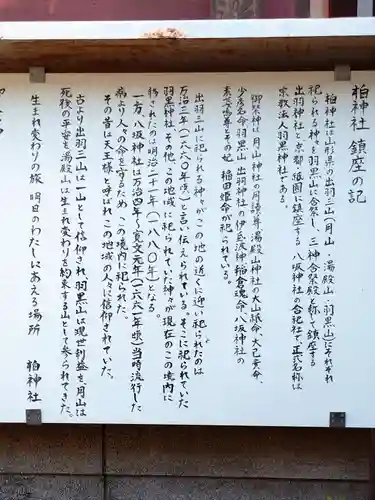 柏神社 鎮座の記
柏神社は山形県の出羽三山(月山・湯殿山・羽黒山)にそれぞれ
祀られる神々を羽黒山に合祭し、三神合祭殿と称して鎮座する
出羽神社と京都祇園に鎮座する 八坂神社の合祀社で、正式名称は
宗教法人羽黒神社である。
御祭神は、月山神社の月読尊、湯殿山神社の大山祇命、大己貴命、
少彦名命、羽黒山 出羽神社の伊氐波神、稲倉魂命、八坂神社の
素戔嗚尊とその妃 稲田姫命が祀られている。
出羽三山に祀られる神々がこの地の近くに迎い祀られたのは
万治三年(一六六〇年頃)と言い伝えられている。そこに祀られていた
羽黒神社とその他、この地域に祀られていた神々が現在のこの境内に
移されたのは明治二十一年(一八八〇年)となる。
一方、八坂神社は万治四年〜寛文元年(一六六一年頃)当時流行した
病より人々の命を守るため、この境内に祀られた。
その昔は天王様と呼ばれ、この地域の人々に信仰されていた。
古より出羽三山は一山として信仰され、羽黒山は現世利益を、月山は
死後の平安を、湯殿山は生まれ変わりを約束する山として参られてきた。
生まれ変わりの旅 明日のわたしにあえる場所 柏神社